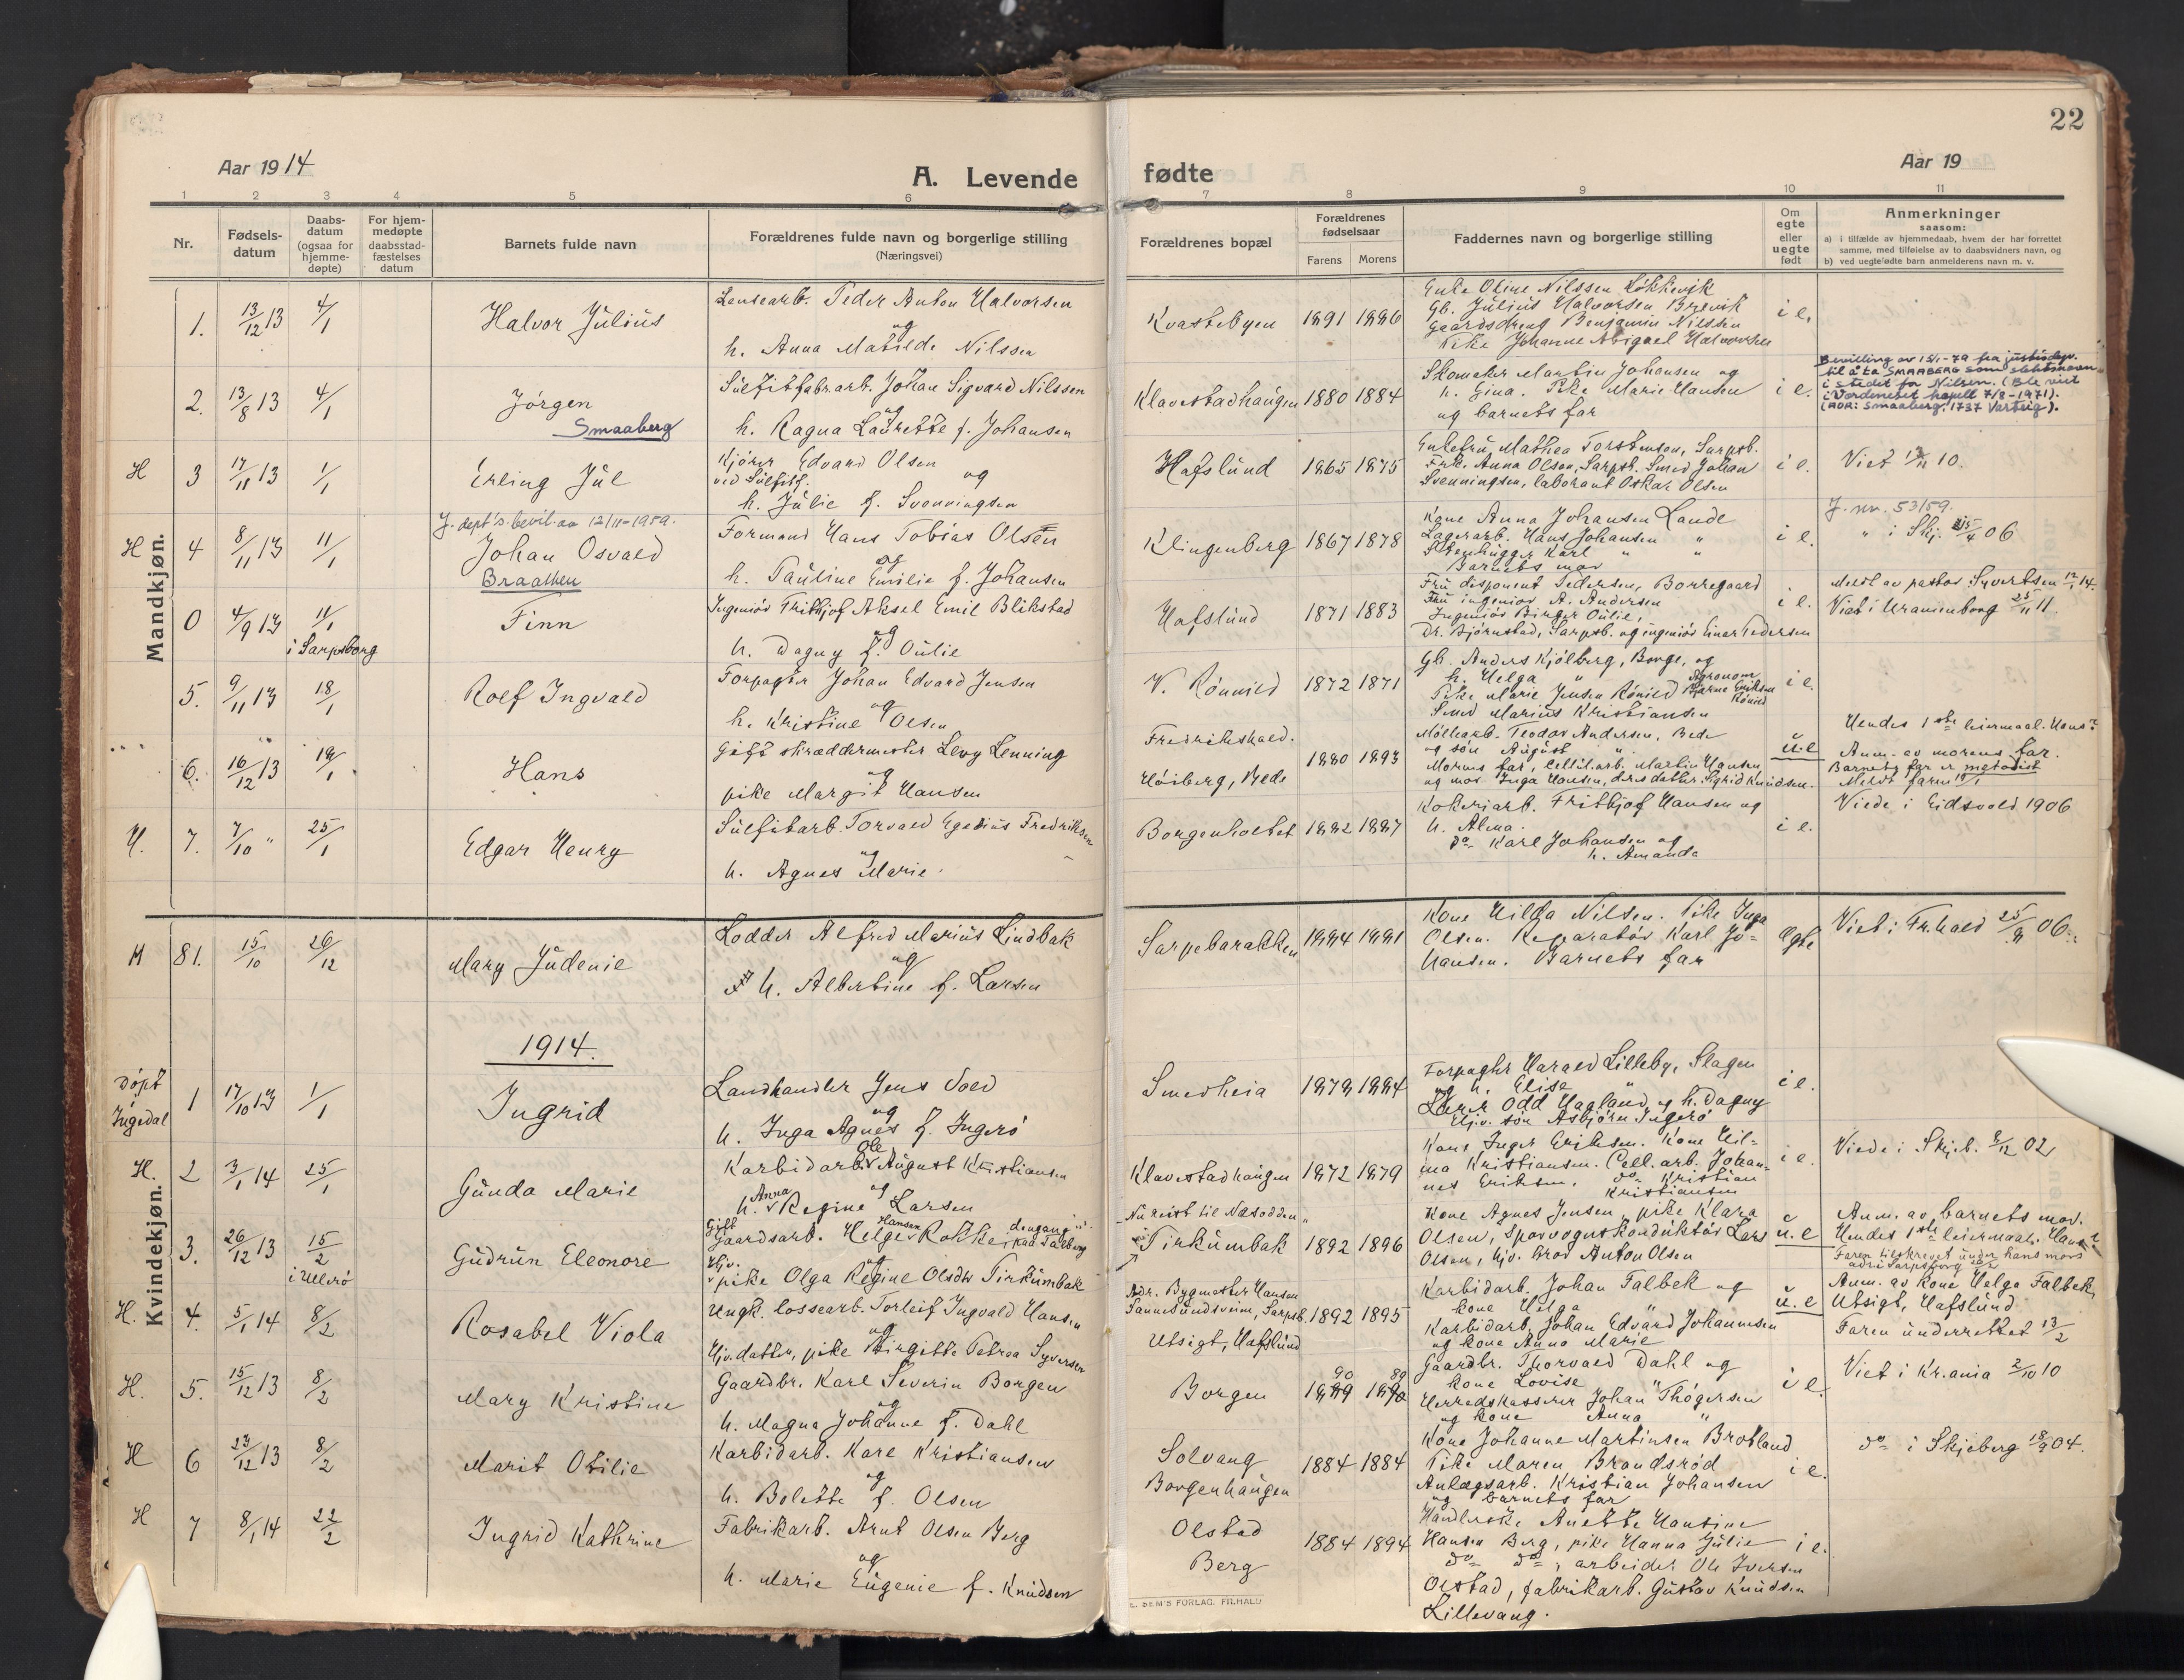 22
Aar 1914
A. Levende
fødte
Aar 19
1 2 3 4 5 6 7 8 9 10 11
Nr.
Fødsels-
datum
Daabs-
datum
(ogsaa for
hjemme-
døpte)
For hjem-
medøpte
daabsstad-
fæstelses
datum
Barnets fulde navn
Forældrenes fulde navn og borgerlige stilling
(Næringsvei)
Forældrenes bopæl
Forældrenes
fødselsaar
Farens Morens
Faddernes navn og borgerlige stilling
Om
egte
eller
uegte
født
Anmerkninger
saasom:
a) i tilfælde av hjemmedaab, hvem der har forrettet
samme, med tilføielse av to daabsvidners navn, og
b) ved uegte fødte barn anmelderens navn m. v.
Mandkjøn.
1. 13/12 13 4/1 Halvor Julius
Lensearb. Peder Anton Halvorsen
og
h. Anna Matilde Nilssen
Kvastebyen 1891 1886
Enke Oline Nilssen Løkkevik
Gb. Julius Halvorsen Brevik
Gaardsdreng Benjamin Nilssen
Pike Johanne Abigael Halvorsen
i e.
2. 13/8 13 4/1 Jørgen
Smaaberg
Sulfitfabr.arb. Johan Sigvard Nilssen
og
h. Ragna Laurette f. Johansen
Klavestadhaugen 1880 1884
Skomaker Martin Johansen og
h. Gina. Pike Marie Hansen
og barnets far
i e.
Bevilling av 15/1-70 fra justisdep.
til å ta SMAABERG som slektsnavn
i stedet for Nilsen. (Ble viet
i Vardeneset kapell 7/8-1971).
(ADR: Smaaberg, 1737 Varteig).
H 3 17/11 13 1/1 Erling Jul
Kjører Edvard Olsen
ved Sulfitf. og
h. Julie f. Svenningsen
Hafslund 1865 1875
Enkefru Mathea Torstenson, Sarpsb.
Frk. Anna Olsen, Sarpsb. Smed Johan
Svenningsen, laborant Oskar Olsen
i e.
Viet 10.
J. dept's bevil. av 12/11-1959.
H 4 8/11 13 11/1 Johan Osvald
Braathen
Formand Hans Tobias Olsen
og
h. Pauline Emilie f. Johansen
Klingenberg 1867 1878
Kone Anna Johansen Lande
Lagerarb. Hans Johansen "
Stenhugger Karl " "
Barnets mor
i e.
J. nr. 53/59.
" i Skj. 06
0 4/9 13 11/1 Finn
i Sarpsborg
Ingeniør Frithjof Aksel Emil Blikstad
og
h. Dagny f. Oulie
Hafslund 1871 1883
Fru disponent Pedersen, Borregaard
Fru ingeniør A. Andersen
Ingeniør Birger Oulie,
Dr. Bjørnstad, Sarpsb. og ingeniør Einar Pedersen
i e.
Meldt av pastor Syvertsen 12/1 14.
Viet i Uranienborg 25/11 11.
5. 9/11 13 18/1 Rolf Ingvald
Forpagter Johan Edvard Jensen
og
h. Kristine f. Olsen
V. Rønnild 1872 1871
Gb. Anders Kjølberg, Borge, og
h. Helga " Agronom
Pike Marie Jensen Rønild Bjarne Eriksen
Rønild
Smed Marius Kristiansen
i e.
6. 16/12 13 19/1 Hans
Gift skræddermester Levy Lenning
og
pike Margit Hansen
Fredrikshald.
Høiberg, Bede
1880 1893
Møllearb. Teodor Andersen, Bede
og søn August "
Morens far, Cellul.arb. Martin Hansen
og mor Inga Hansen, deres datter Sigrid Knudsen.
u.e
Hendes 1ste leiermaal. Hans?
Anm. av morens far.
Barnets far er metodist
Meldt faren 19/1
H. 7. 7/10 " 25/1 Edgar Henry
Sulfitarb. Torvald Egedius Fredriksen
og
h. Agnes Marie.
Borgenholtet 1882 1887
Kokeriarb. Frithjof Hansen og
h. Alma.
do Karl Johansen og
h. Amanda
i e.
Viede i Eidsvold 1906
H 81. 15/10 26/12 Mary Judenie
Lodder Alfred Marius Lindbak
og
h. Albertine f. Larsen
Sarpebarakken 1884 1881
Kone Hilda Nilsen. Pike Inga
Olsen. Reparatør Karl Jo=
hansen. Barnets far
Egte
Viet i Fr.hald 06.
1914.
Kvindekjøn.
Døpt
Ingedal
1 17/10 13 1/1 Ingrid
Landhandler Jens Vold
og
h. Inga Agnes f. Ingerø
Smedheia 1878 1884
Forpagter Harald Lilleby, Slagen
og h. Elise "
Lærer Odd Hagland og h. Dagny
Hjv. søn Asbjørn Ingerø
i e.
H. 2 3/1 14 25/1 Gunda Marie
Ole
Karbidarb. August Kristiansen
og
h. Anna Regine Larsen
Klavestadhaugen 1872 1879
Kone Inger Eriksen. Kone Hil=
ma Kristiansen. Cell.arb. Johan=
nes Eriksen. do Kristian
Kristiansen
i e.
Viede i Skjeb. 02
3. 26/12 13 15/2 Gudrun Eleonore
i Ullerø
Gift
Gaardsarb. Helge Hansen Rokke, dengang
paa Tarberg
Hjv. og
pike Olga Regine Olsdtr Tirkumbak
"Nu reist til Næsodden"
Tirkumbak 1892 1896
Kone Agnes Jensen, pike Klara
Olsen, Sporvognskonduktør Lars
Olsen, hjv. bror Anton Olsen
u.e
Anm. av barnets mor.
Hendes 1ste leiermaal. Hans?
Faren tilskrevet under hans mors
adr. i Sarpsborg
H. 4. 5/1 14 8/2 Rosabel Viola
Ungk. lossearb. Torleif Ingvald Hansen
og
Hjv. datter, pike Birgitte Petrea Syversen
Adr. Bygmester Hansen
Sannesundsveien, Sarpsb. 1892 1895
Utsigt, Hafslund
Karbidarb. Johan Falbek og
kone Helga "
Karbidarb. Johan Edvard Johannesen
og kone Anna Marie
u.e
Anm. av kone Helga Falbek,
Utsigt, Hafslund
Faren underrettet 13/2
H. 5. 15/12 13 8/2 Mary Kristine
Gaardbr. Karl Severin Borgen
og
h. Magna Johanne f. Dahl
90 89
Borgen 1889 1890
Gaardbr. Thorvald Dahl og
kone Lovise "
Herredskasserer Johan Thøgersen
og kone Anna "
i e.
Viet i Kr.ania 2/10 10
H 6 23/12 13 8/2 Marit Otilie
Karbidarb. Karl Kristiansen
og
h. Bolette f. Olsen
Solvang
Borgenhaugen
1884 1884
Kone Johanne Martinsen Brotland
Pike Maren Brandsrød
Anlægsarb. Kristian Johansen
og barnets far
i e.
do i Skjeberg 18/9 04.
H 7 8/1 14 22/2 Ingrid Kathrine
Fabrikarb. Arnt Olsen Berg
og
h. Marie Eugenie f. Knudsen
Olstad
Berg
1884 1894
Handlerske Anette Hansine
Hansen Berg, pike Hanna Julie
do do, arbeider Ole Iversen
Olstad, fabrikarb. Gustav Knudsen
Lillevang.
i e.
E. SEM'S FORLAG. F.HALD